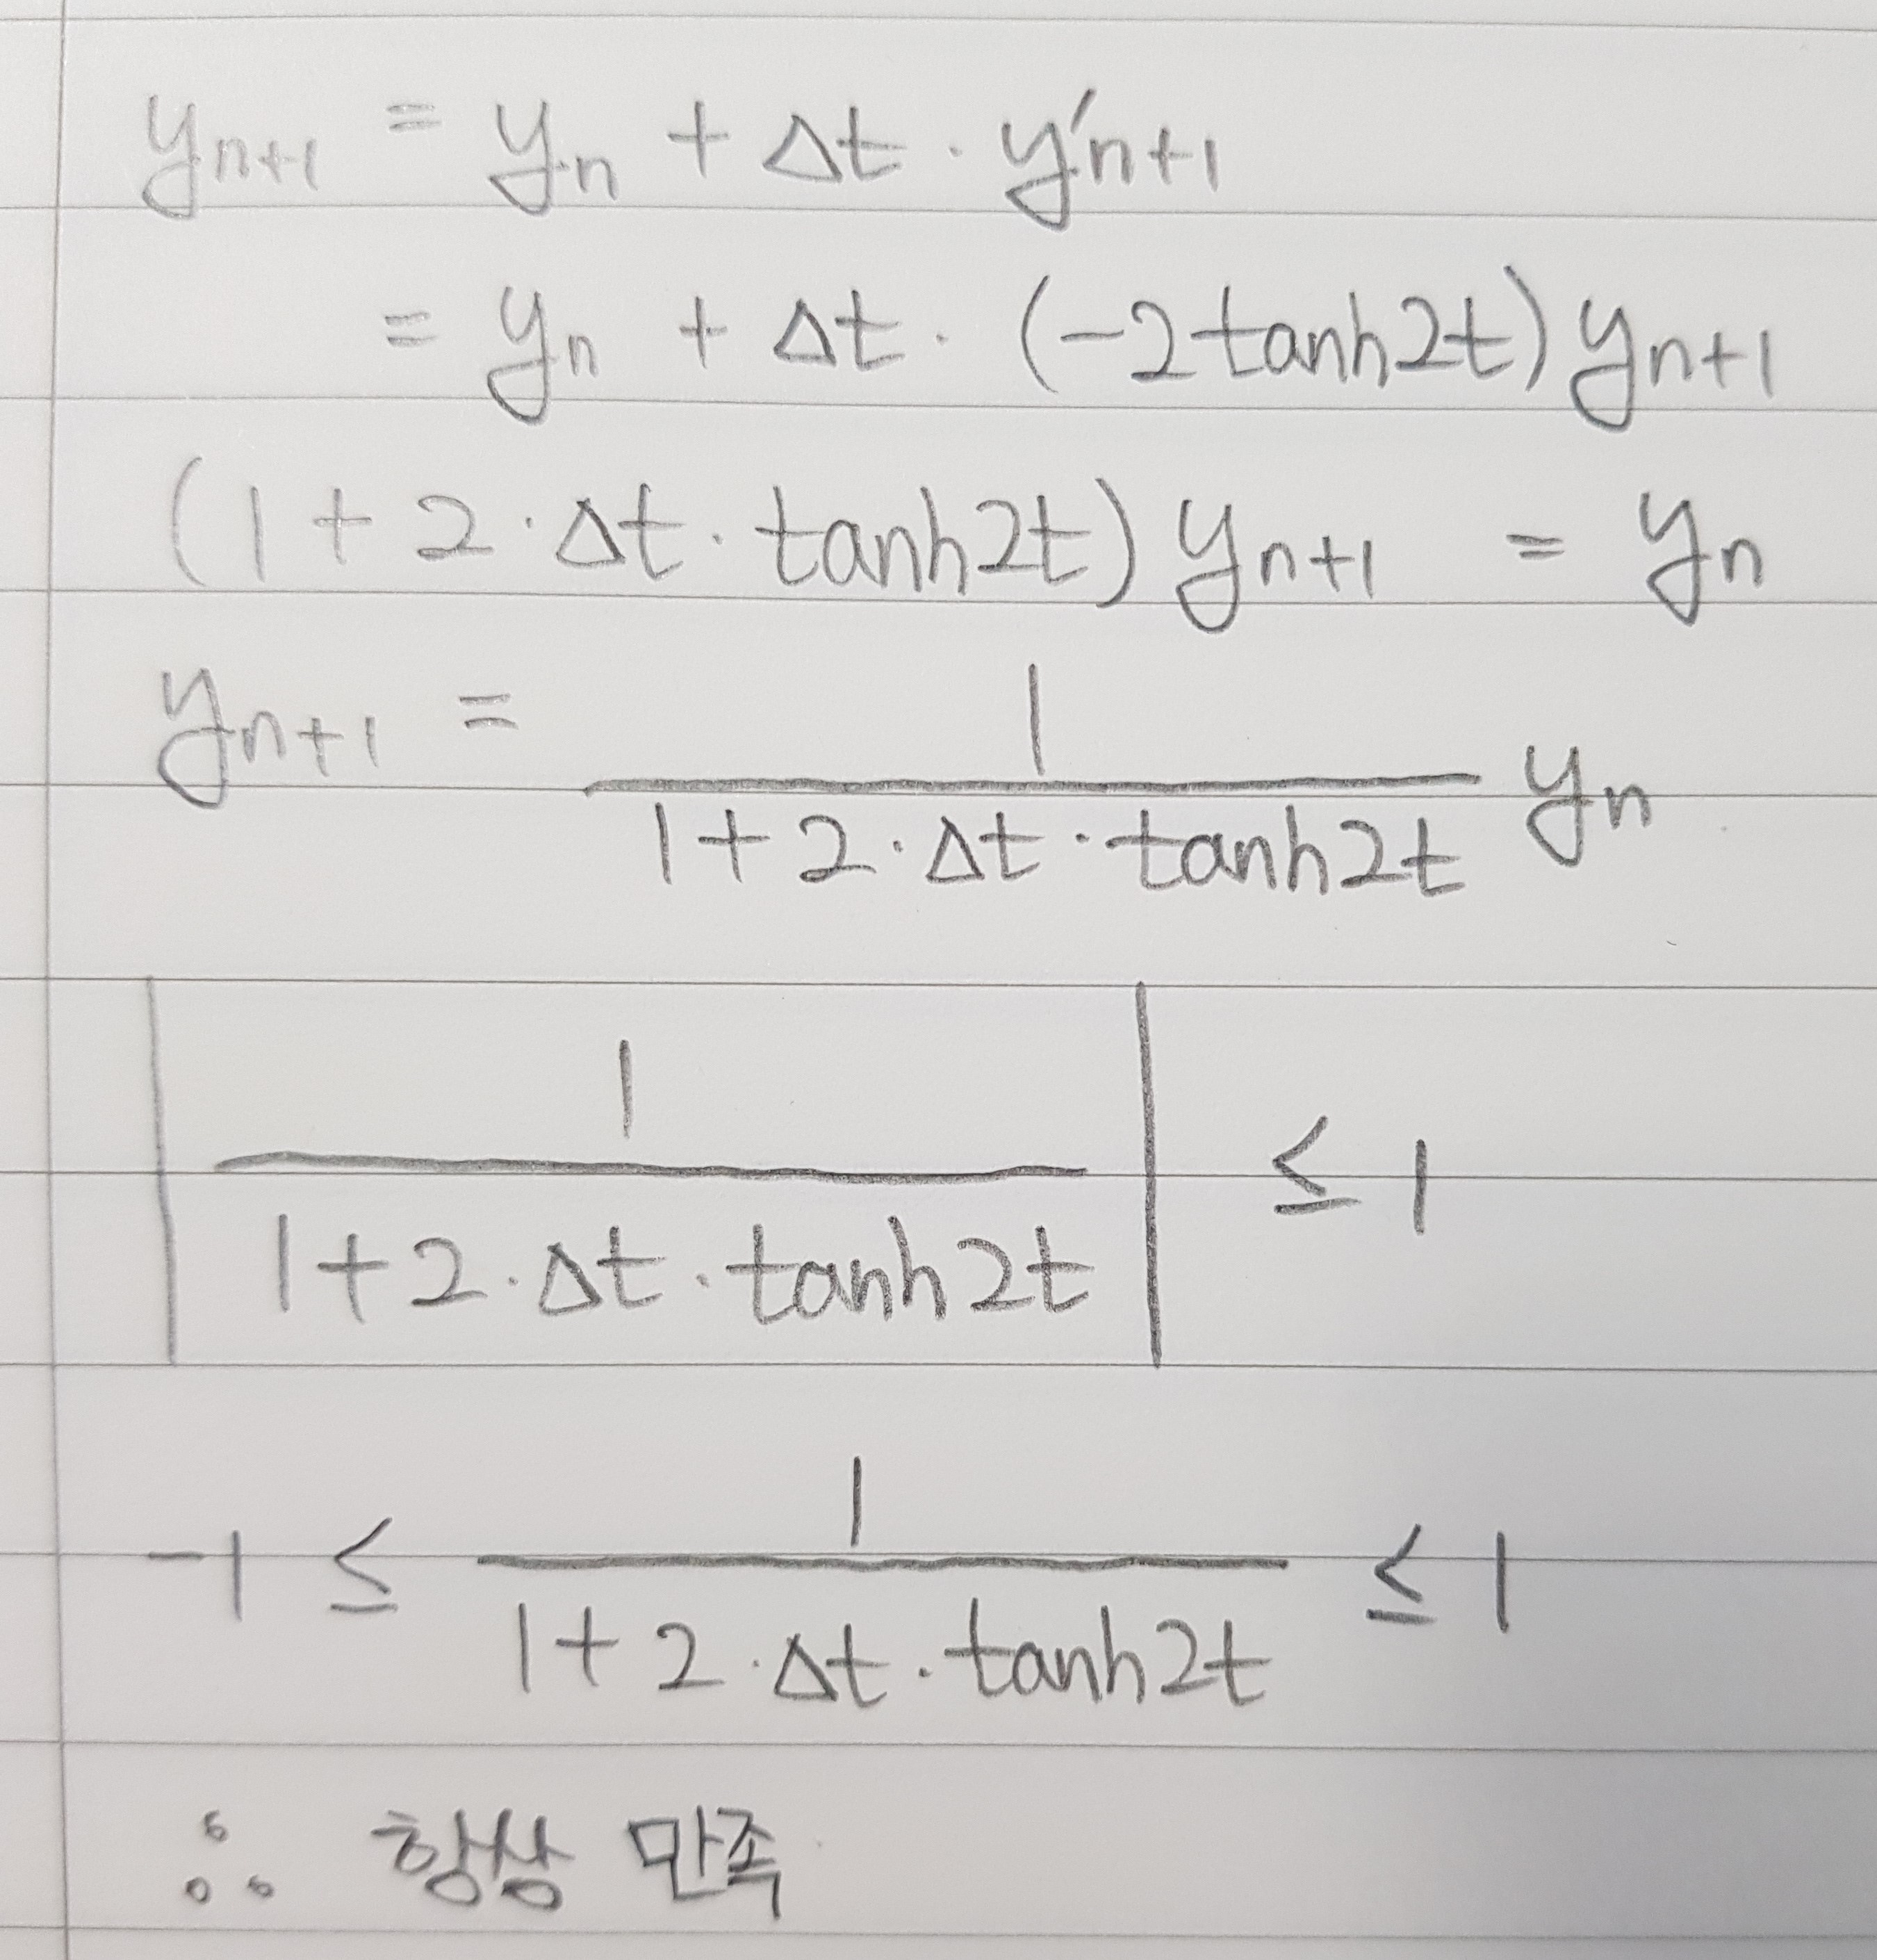 yₙ₊₁ = yₙ + Δt · y′ₙ₊₁
= yₙ + Δt · (-2tanh2t) yₙ₊₁
(1 + 2 · Δt · tanh2t) yₙ₊₁ = yₙ
yₙ₊₁ = 1 / (1 + 2 · Δt · tanh2t) yₙ
| 1 / (1 + 2 · Δt · tanh2t) | ≤ 1
-1 ≤ 1 / (1 + 2 · Δt · tanh2t) ≤ 1
∴ 항상 만족